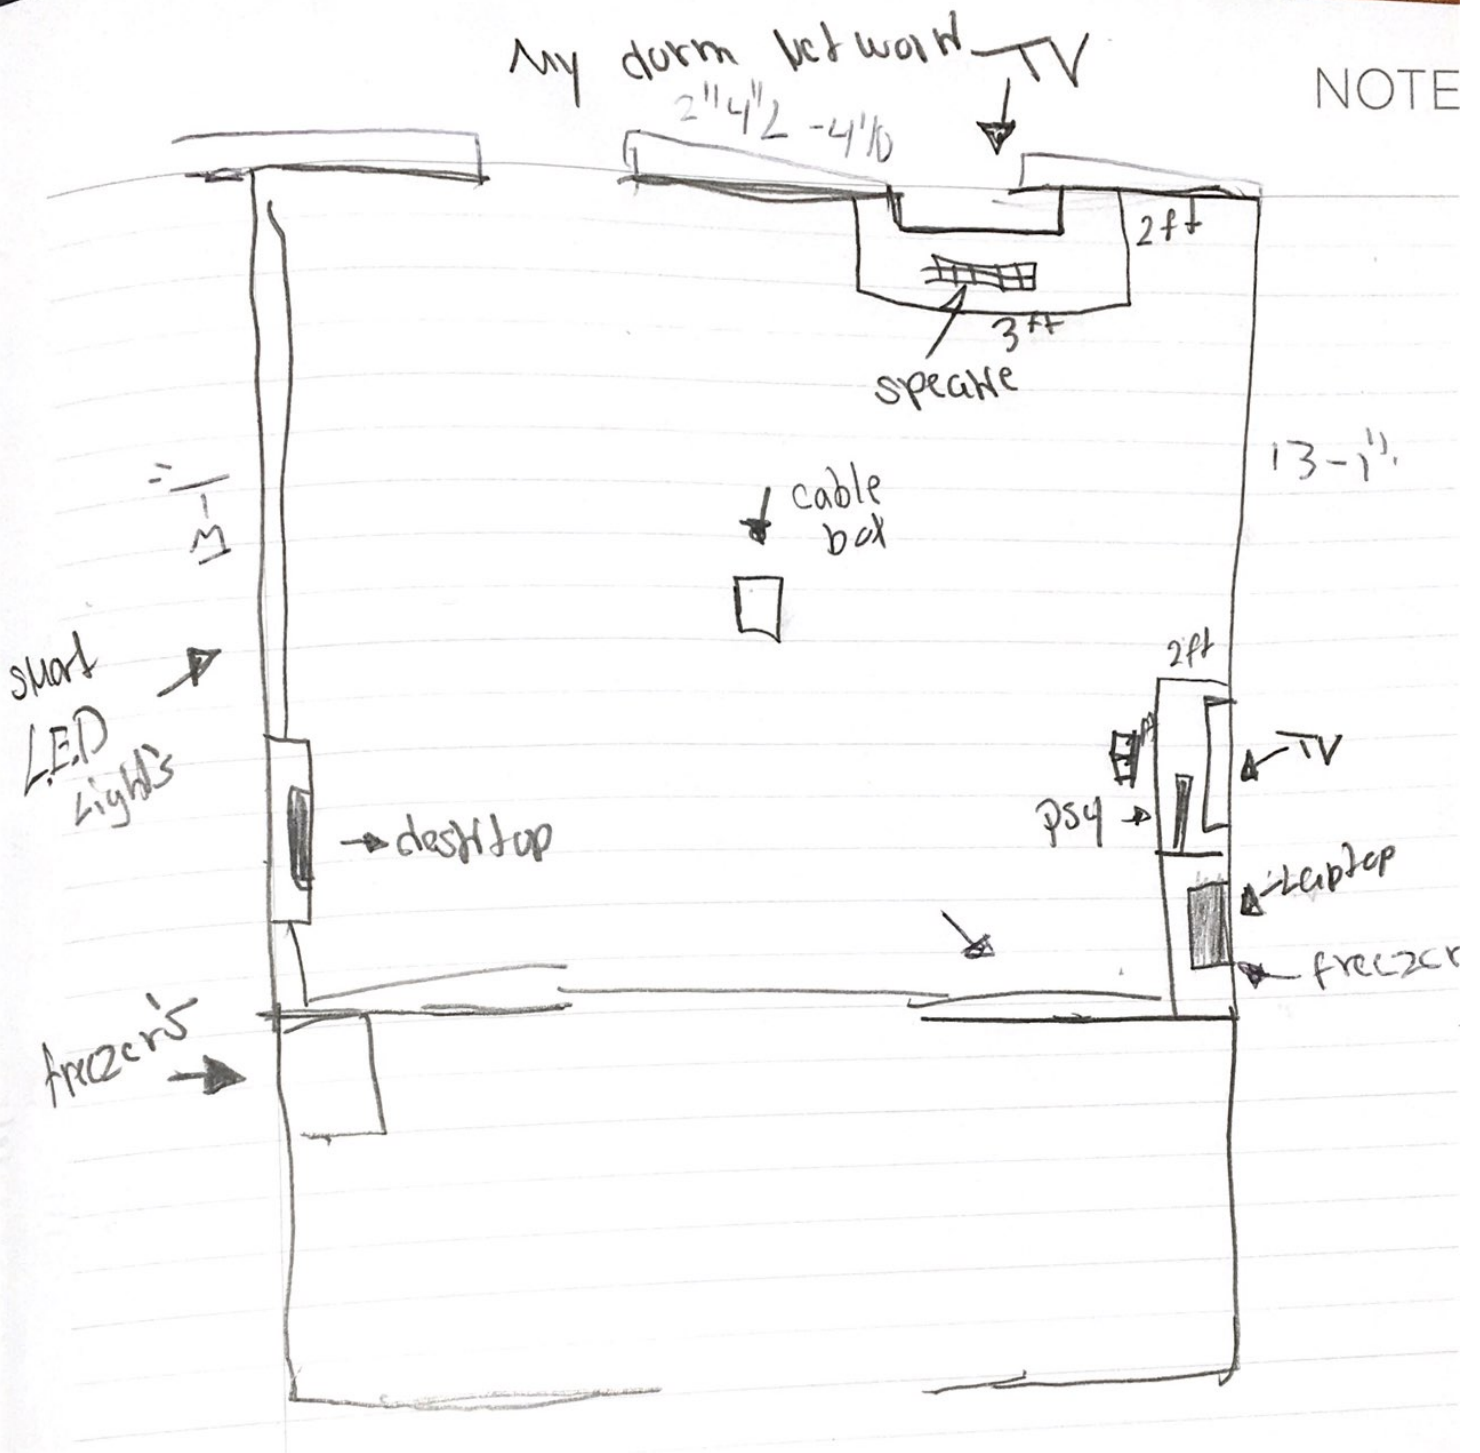 My dorm network
TV
NOTE
2ft
3ft
speake
13-1"
cable
box
smart
LED
Lights
2ft
TV
ps4
desktop
Laptop
freezer
freezer's